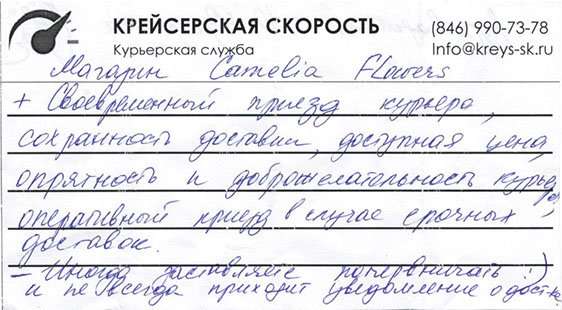 КРЕЙСЕРСКАЯ СКОРОСТЬ (846) 990-73-78
Курьерская служба Info@kreys-sk.ru
Магазин Camelia Flowers
+ Своевременный приезд курьера,
сохранность доставки, доступная цена,
опрятность и доброжелательность курьера,
оперативный приезд в случае срочных
доставок.
- Иногда заставляете понервничать :)
и не всегда приходит уведомление о дост-ке